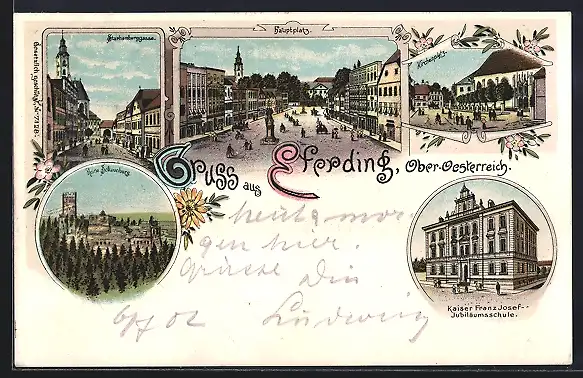 Starhembergasse.
Hauptplatz.
Kirchenplatz.
Gesetzlich geschützt No 7128.
Gruss aus Eferding, Ober-Oesterreich.
Ruine Schaunberg
Kaiser Franz Josef-
Jubiläumsschule.
heute mor
gen hier.
Grüsse Dein
Ludwig
6/7 02